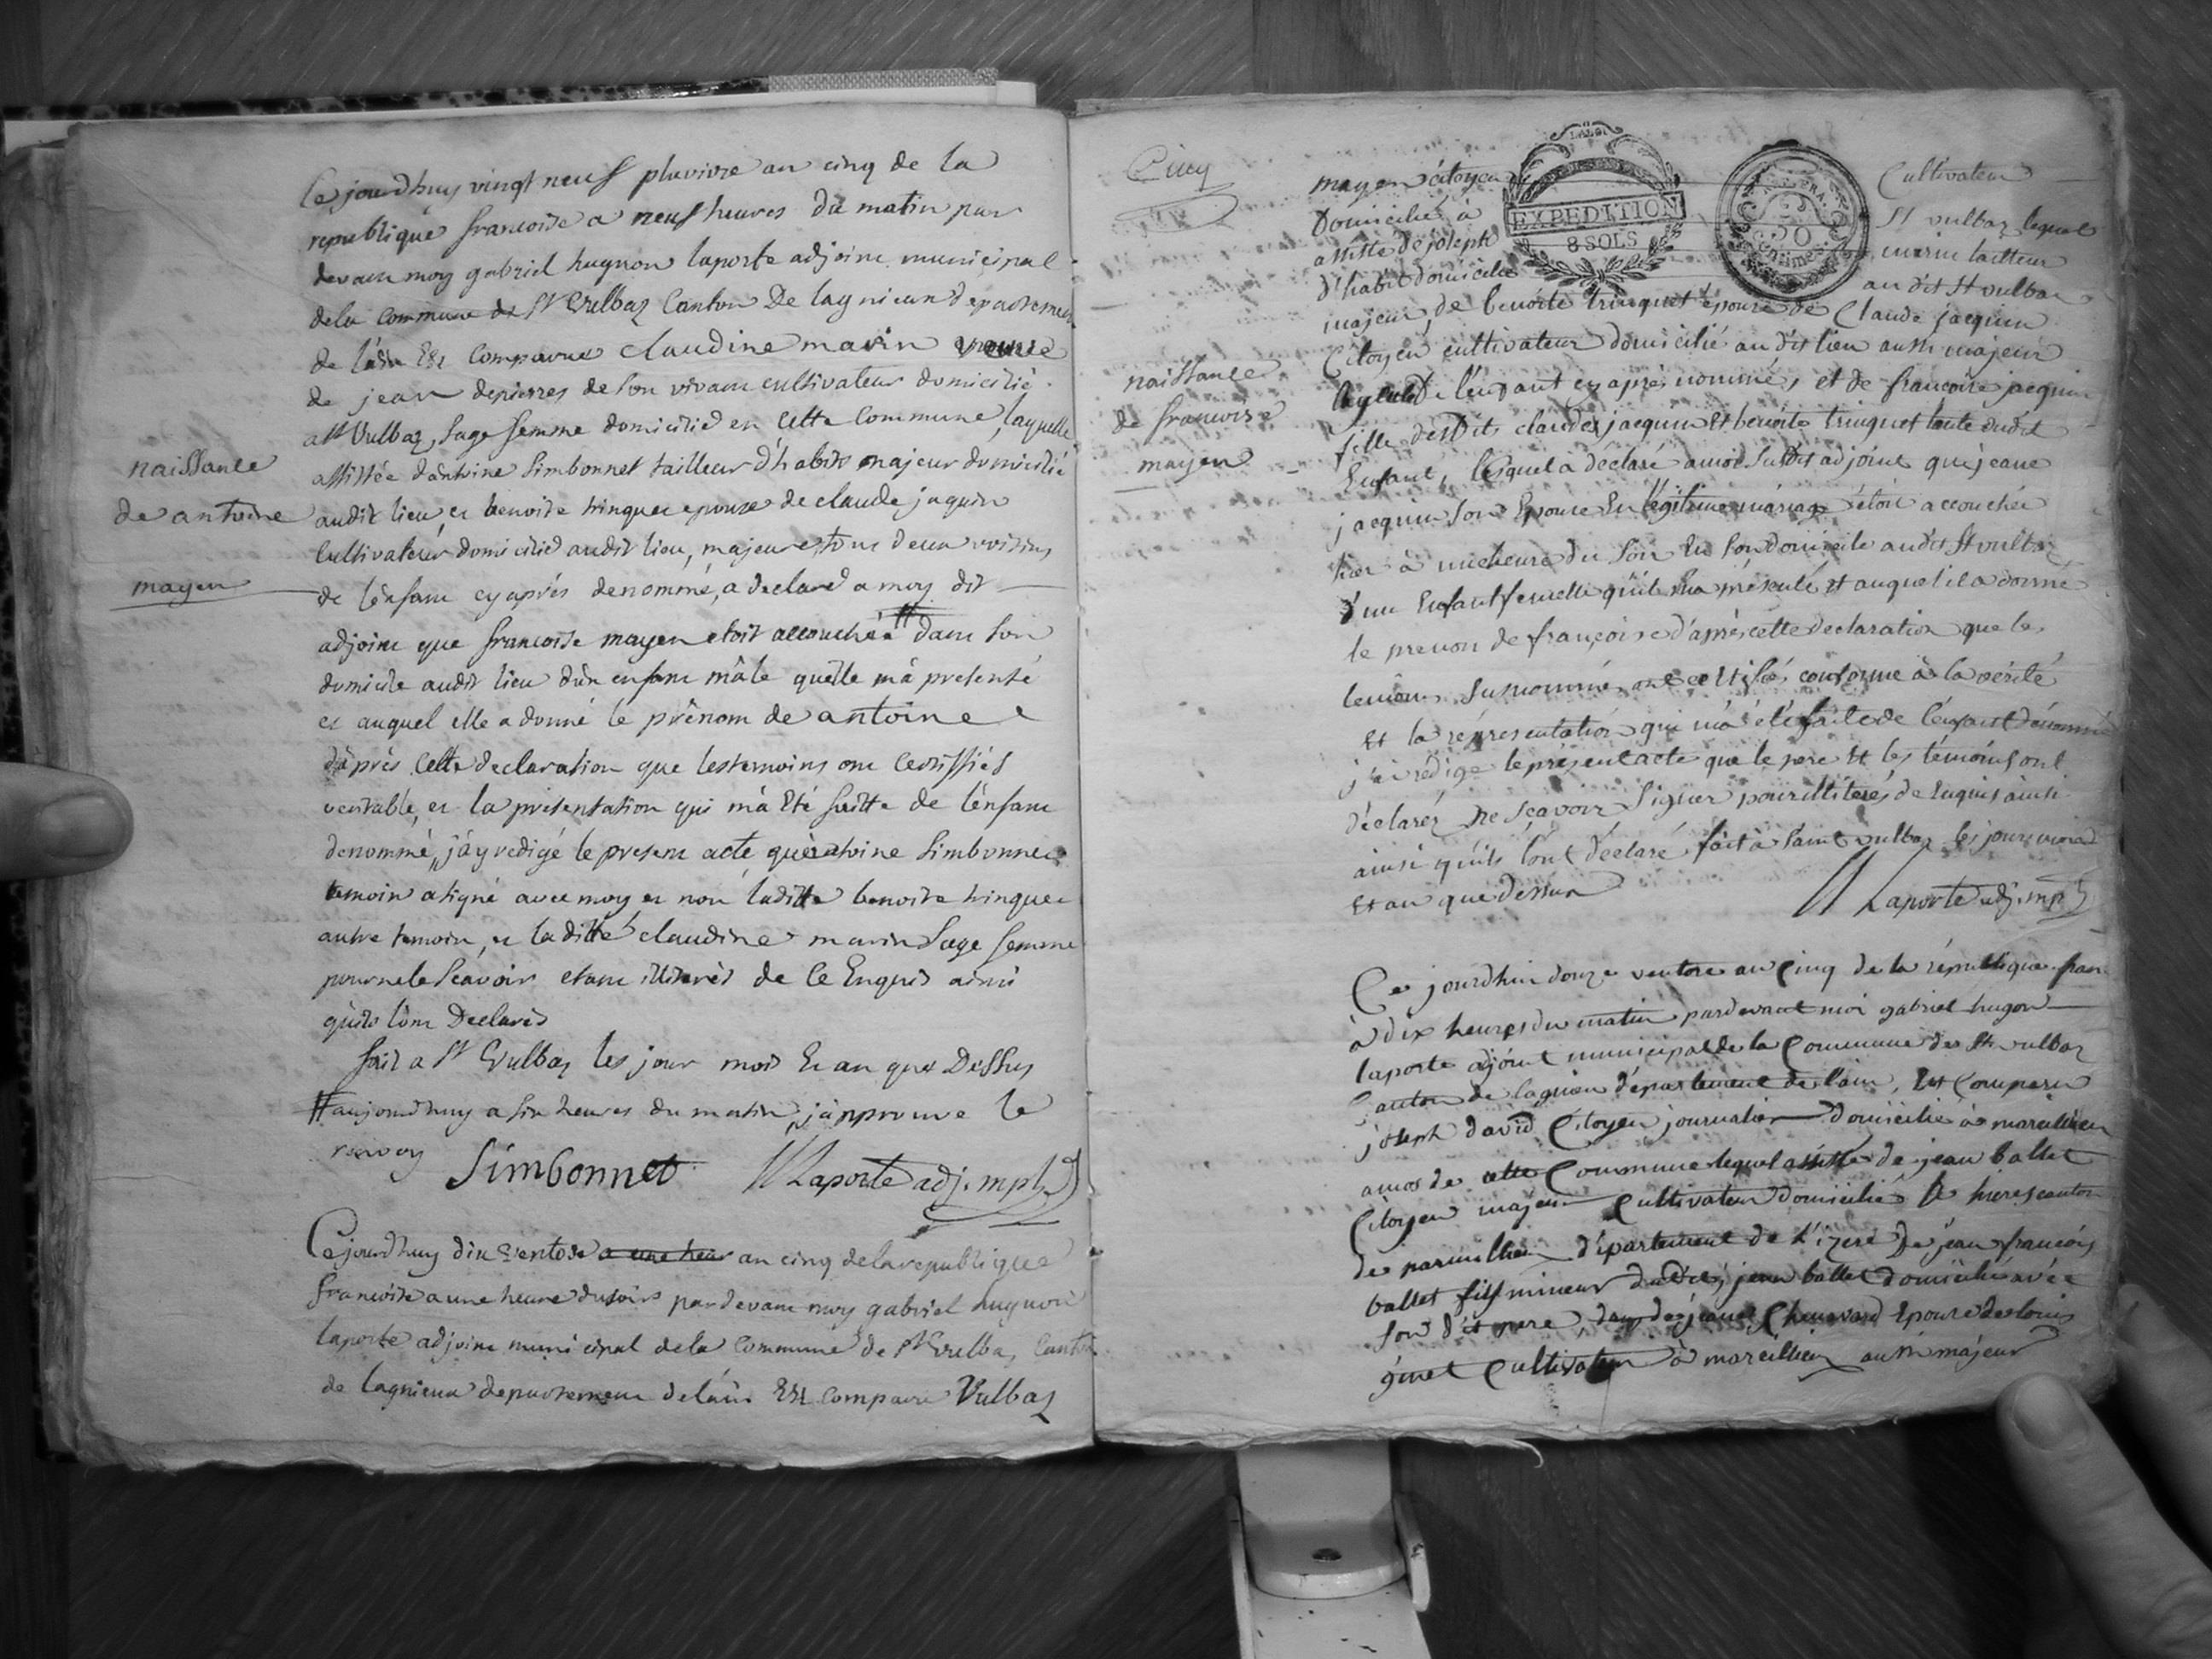 Ce jourdhuy vingt neuf pluviose an cinq de la
republique francoise a neuf heures du matin par
devant moy gabriel hugnon laporte adjoint municipal
dela commune de St Vulbaz Canton De lagnieu departement
de láin Est Comparue claudine marin veuve
de jean depierres de son vivant cultivateur domicilié
a St Vulbaz, sage femme domicilié en cette Commune, laquelle
assistée dántoine Simbonnet tailleur d'habits majeur domicilié
naissance
de antoine
mayen
audit lieu, et benoite trinquet epouse de claude jaquin
Cultivateur domicilié audit lieu, majeure, tous deux voisins
de l'énfant cy aprés denommé, a declaré a moy dit
adjoint que francoise mayen etoit accouchée # dans son
domicile audit lieu dún enfant mâle quélle má presenté
et auquel elle a donné le prénom de antoine
dáprés cette declaration que les temoins ont certiffiés
veritable, et la présentation qui má Eté faitte de lénfant
denommé, jáy redigé le present acte qué antoine Simbonnet
temoin a signé avec moy et non laditte benoite trinquet
autre temoin, et laditte claudine marin Sage femme
pour ne le Scavoir etant illiterés de Ce Enquis ainsi
qúils lónt Declarés
fait a St Vulbaz les jour mois Et an que Dessus
# aujourdhuy a six heures du matin, jápprouve le
renvoy Simbonnet Laporte adj. mpl
Ce jourdhuy dix ventose a une heur an cinq dela republique
francoise a une heure du soir pardevant moy gabriel hugnon
laporte adjoint municipal dela Commune de St Vulba, Canton
de lagnieux departement deláin Est Comparu Vulbaz
Cinq
mayen citoyen Cultivateur
Domicilié à St vulbaz lequel
assisté de joseph marin tailleur
d'habit domicilié au dit St vulbaz
EXPEDITION
8 SOLS
majeur, de benoite trinquet épouse de Claude jacquin
Citoyen cultivateur domicilié au dit lieu aussi majeur
naissance
de francoise
mayen
de l'enfant cy après nommé, et de francoise jacquin
fille desdits claude jacquin Et benoite trinquet tante dudit
Enfant, lequel a déclaré a moi Susdit adjoint que jeane
jacquin son Epouse En légitime mariage étoit accouchée
hier à une heure du Soir En son domicile au dit St vulbaz
d'un Enfant femelle qu'il m'a présenté Et auquel il a donné
le prenom de françoise d'après cette declaration que les
temoins susnommés ont certifié conforme à la vérité
Et la représentation qui m'a été faite de l'enfant dénommé
j'ai rédigé le présent acte que le pere Et les témoins ont
déclarés ne scavoir Signer pour illiterés de Enquis ainsi
ainsi qu'ils l'ont déclaré fait à saint vulbaz les jour, mois
Et an que dessus Laporte adj. mpl
Ce jourdhui douze ventose an Cinq de la république fran
à dix heures du matin pardevant moi gabriel hugon
laporte adjoint municipal de la Commune de St vulbaz
Canton de lagnieu département de l'ain, Est Comparu
joseph david Citoyen journalier domicilié à marcillieu
de cette Commune lequel assisté de jean ballet
Citoyen majeur Cultivateur domicilié canton
de département de l'izere De jean francois
ballet fils mineur dudit jean ballet domicilié avec
son dit pere, de jeane Chenavard Epouse de louis
ginet Cultivateur à marcillieu aussi majeur